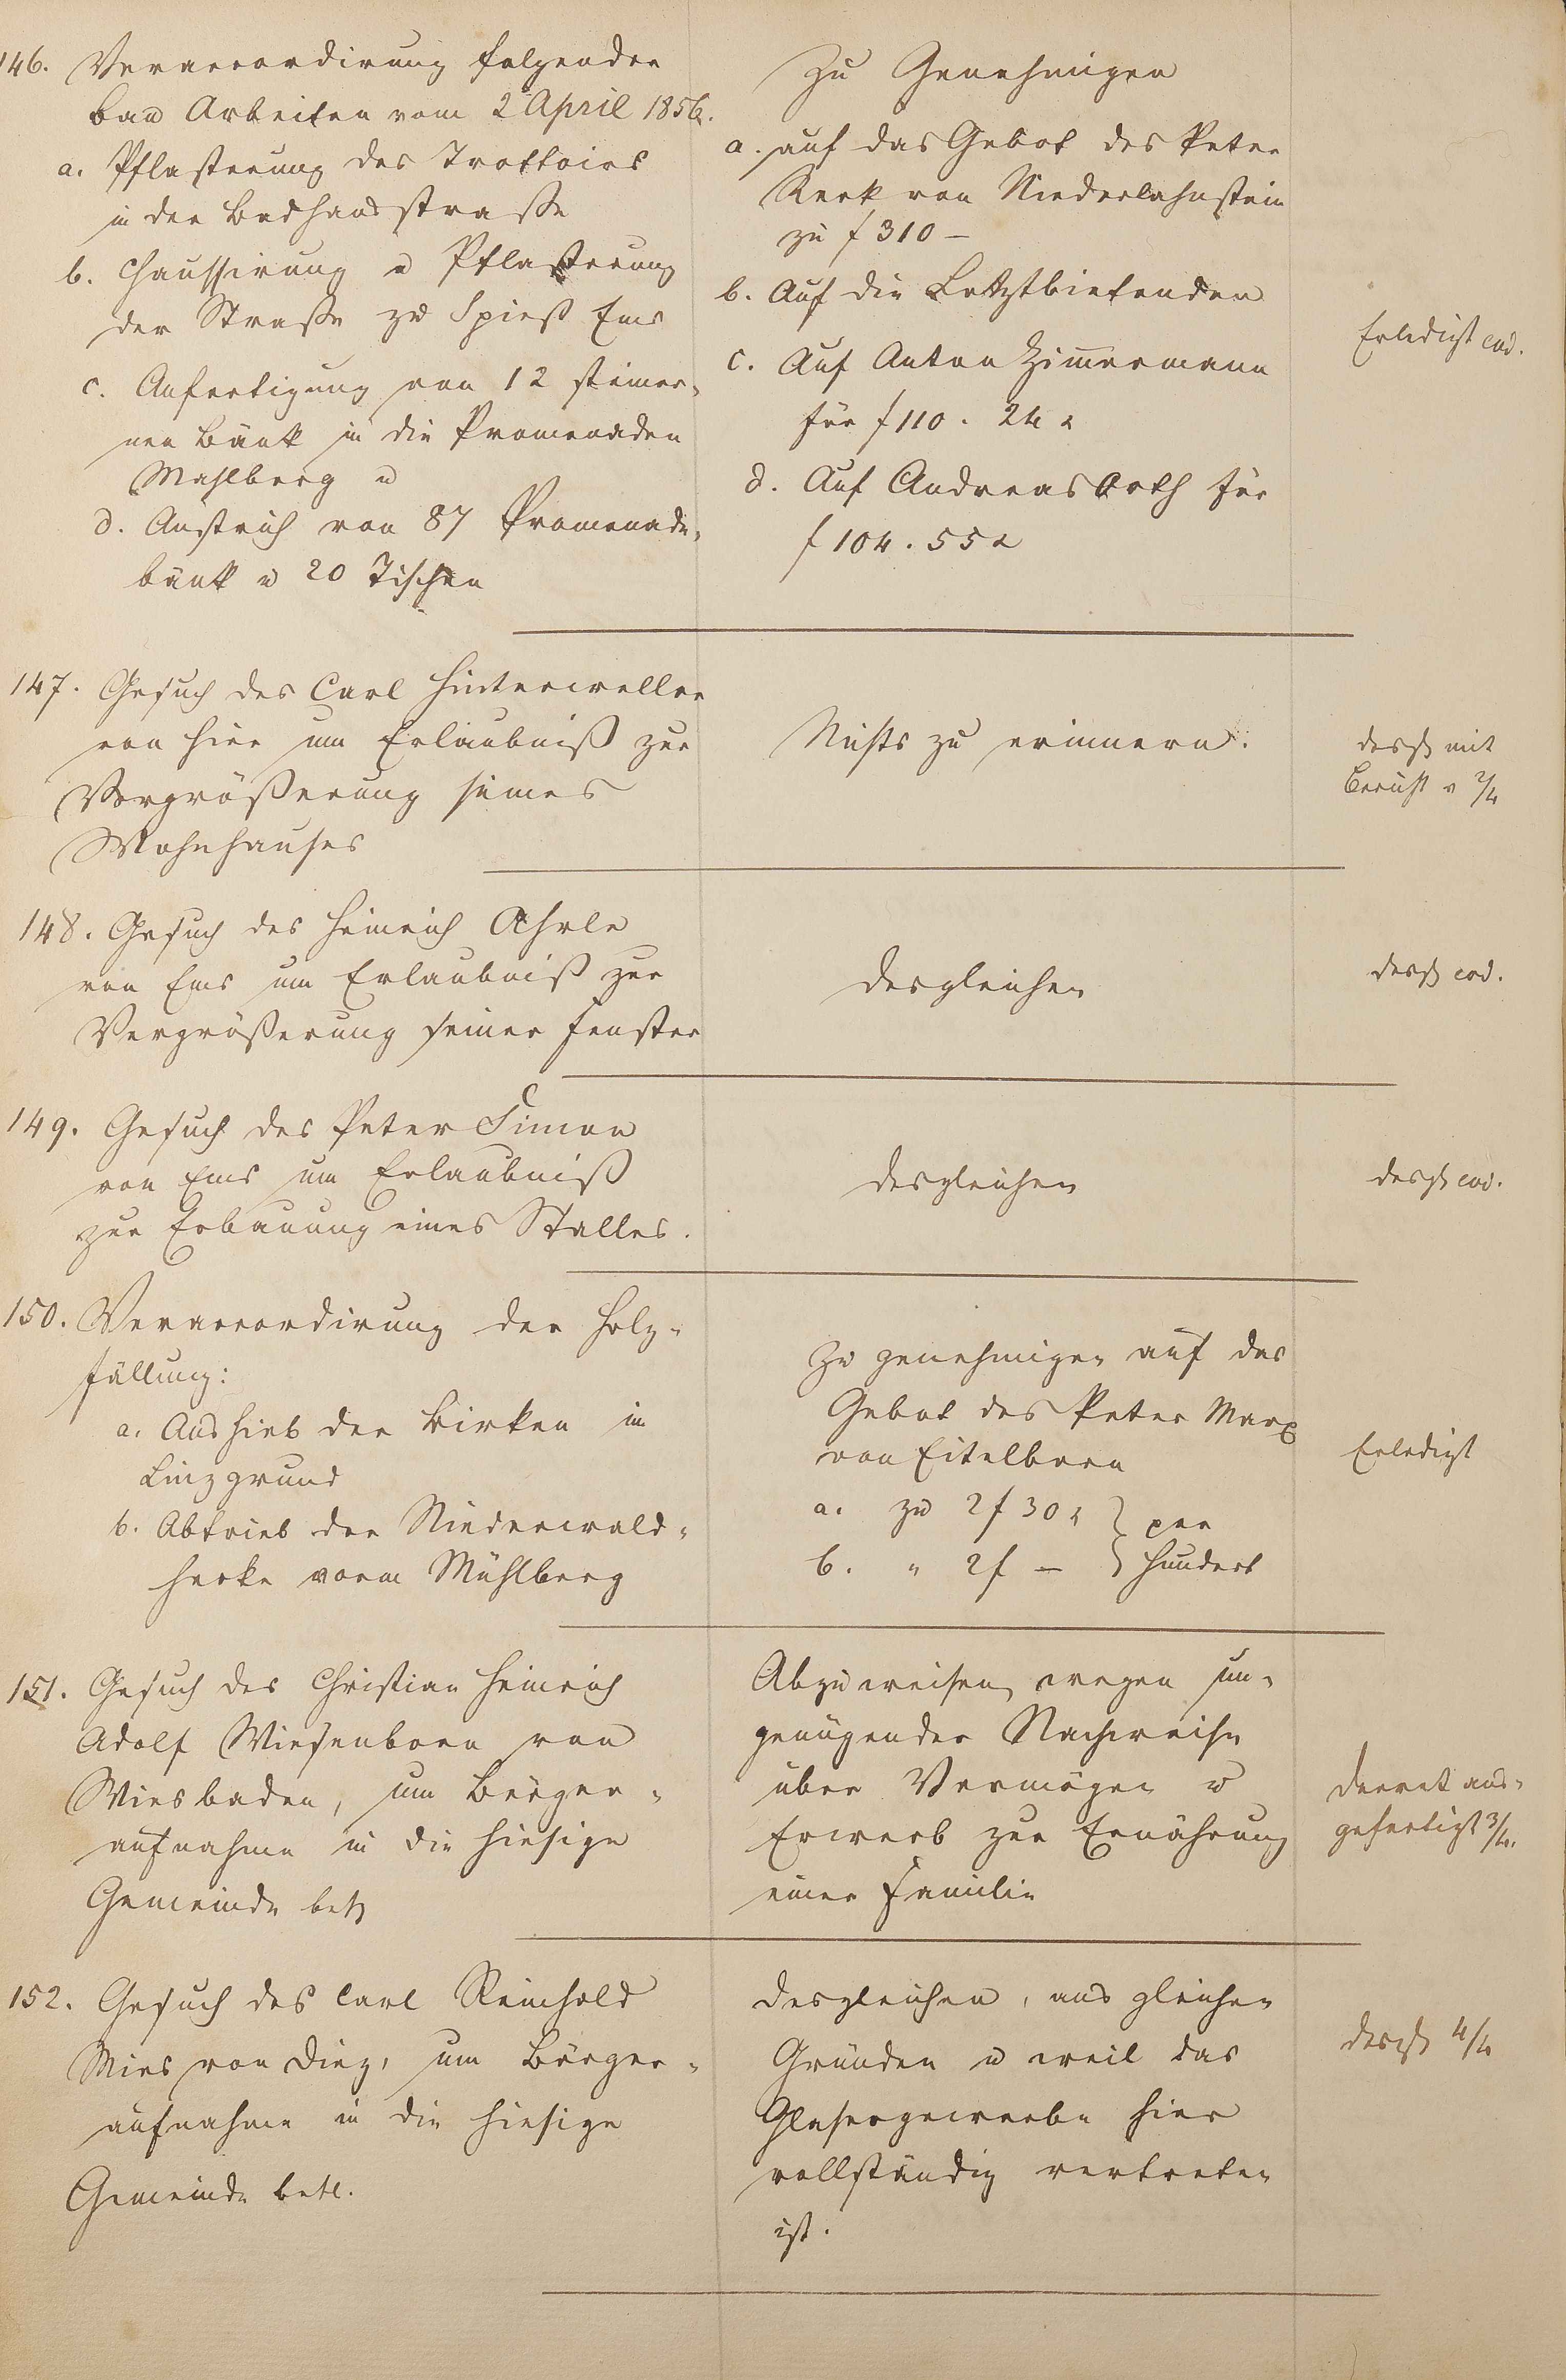 146. Veraccordirung folgender
bau Arbeiten vom 2 April 1856.
a. Pflasterung des Trottoirs
in der Badhausstraße
b. Chaussirung u Pflasterung
der Straße zu Spieß Ems
c. Anfertigung von 12 steiner„
nen Bänk in die Promenaden
Mahlberg u
d. Anstrich von 87 Promenade„
bänk u 20 Tischen
Zu Genehmigen
a. auf das Gebot des Peter
von Niederlahnstein
zu f 310 –
b. Auf die Letztbietenden
c. Auf Anton Zimmermann
für f 110 . 24 x
d. Auf Andreas Orth für
f 104 . 55 x
Erledigt eod.
147. Gesuch des Carl Hinterweller
von hier um Erlaubniß zur
Vergrößerung seines
Wohnhauses
Nichts zu erinnern.
desgl mit
Bericht v 2/4
148. Gesuch des Heinrich Ahrle
von Ems um Erlaubniß zur
Vergrößerung seiner Fenster
desgleichen
desgl eod.
149. Gesuch des Peter Simon
von Ems um Erlaubniß
zur Erbauung eines Stalles.
desgleichen
desgl eod.
150. Veraccordirung der Holz„
fällung:
a. Aushieb der Birken im
Linzgrund
b. Abtrieb der Niederwald„
hecke vorm Mühlberg
Zu genehmigen auf das
Gebot des Peter Marx
von Eitelborn
a. zu 2 f 30 x } per
b. „ 2 f – } Hundert
Erledigt
151. Gesuch des Christian Heinrich
Adolf Wiesenborn von
Wiesbaden, um Bürger„
aufnahme in die hiesige
Gemeinde betr
Abzuweisen wegen un„
genügender Nachweise
über Vermögen u
Erwerb zur Ernährung
einer Familie
Decret aus„
gefertigt 3/4.
152. Gesuch des Carl Reinhold
Mies von Diez, um Bürger„
aufnahme in die hiesige
Gemeinde betr.
desgleichen, aus gleichen
Gründen u weil das
Glasergewerbe hier
vollständig vertreten
ist.
desgl 4/4